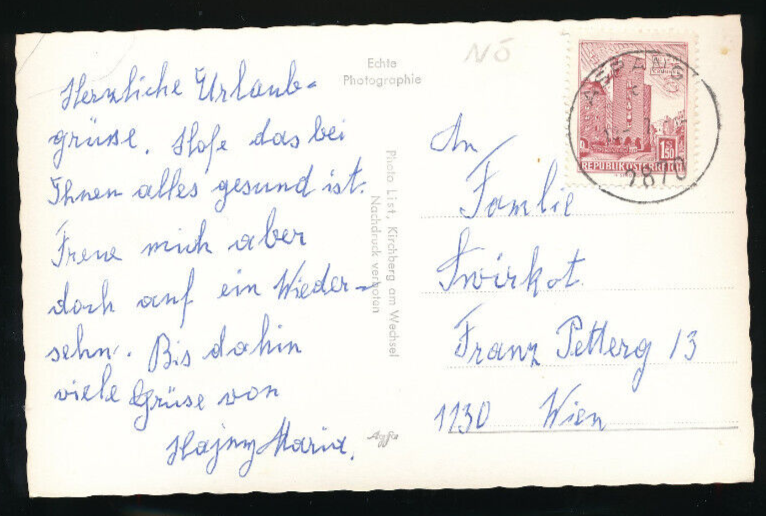 Herzliche Urlaub-
grüsse. Hofe das bei
Ihnen alles gesund ist.
Freue mich aber
doch auf ein Wieder-
sehn. Bis dahin
viele Grüse von
Hajny Maria.
NÖ
Echte
Photographie
Photo List, Kirchberg am Wechsel
Nachdruck verboten
Agfa
ASPANG
2870
1.50
REPUBLIK ÖSTERREICH
An
Familie
Swirkot
Franz Petterg 13
1130 Wien